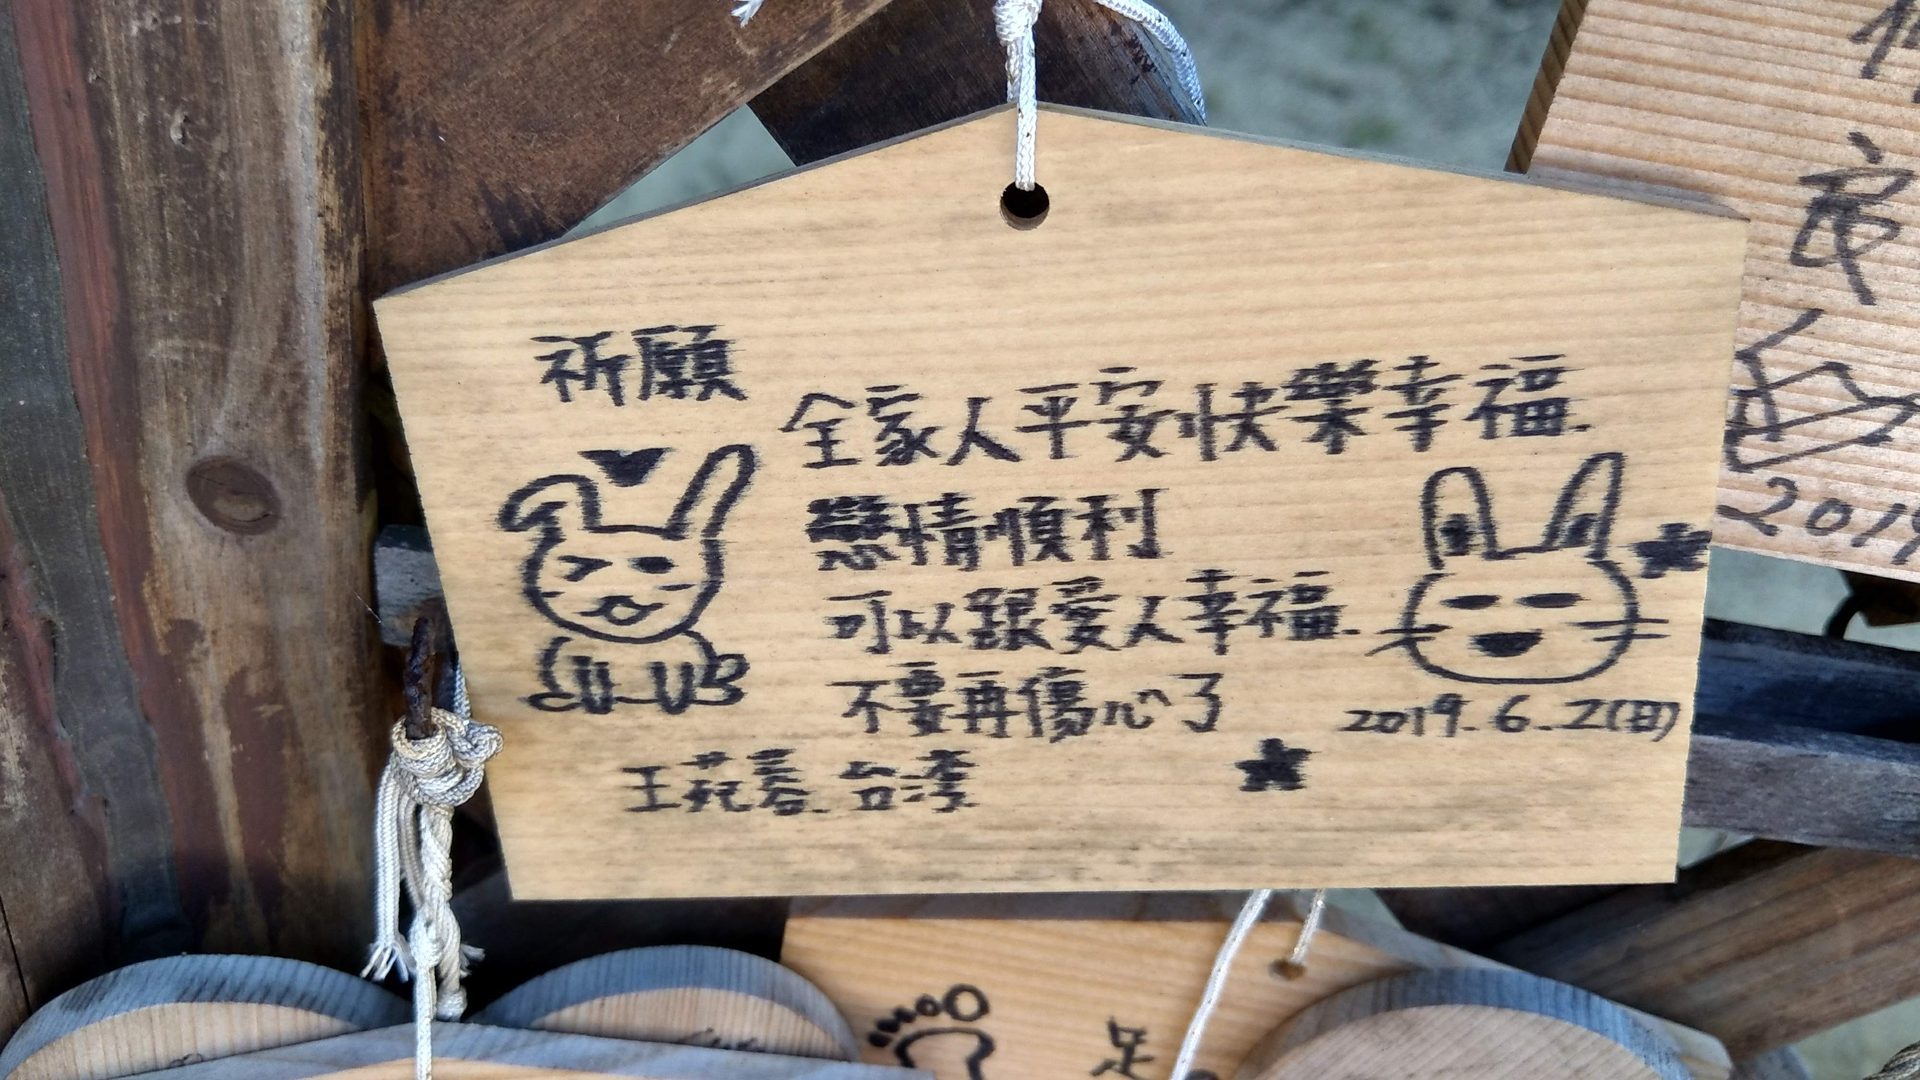 祈願
全家人平安快樂幸福.
戀情順利
可以跟愛人幸福.
不要再傷心了
2019.6.2(日)
王苑蓉.台湾
良
2019
足